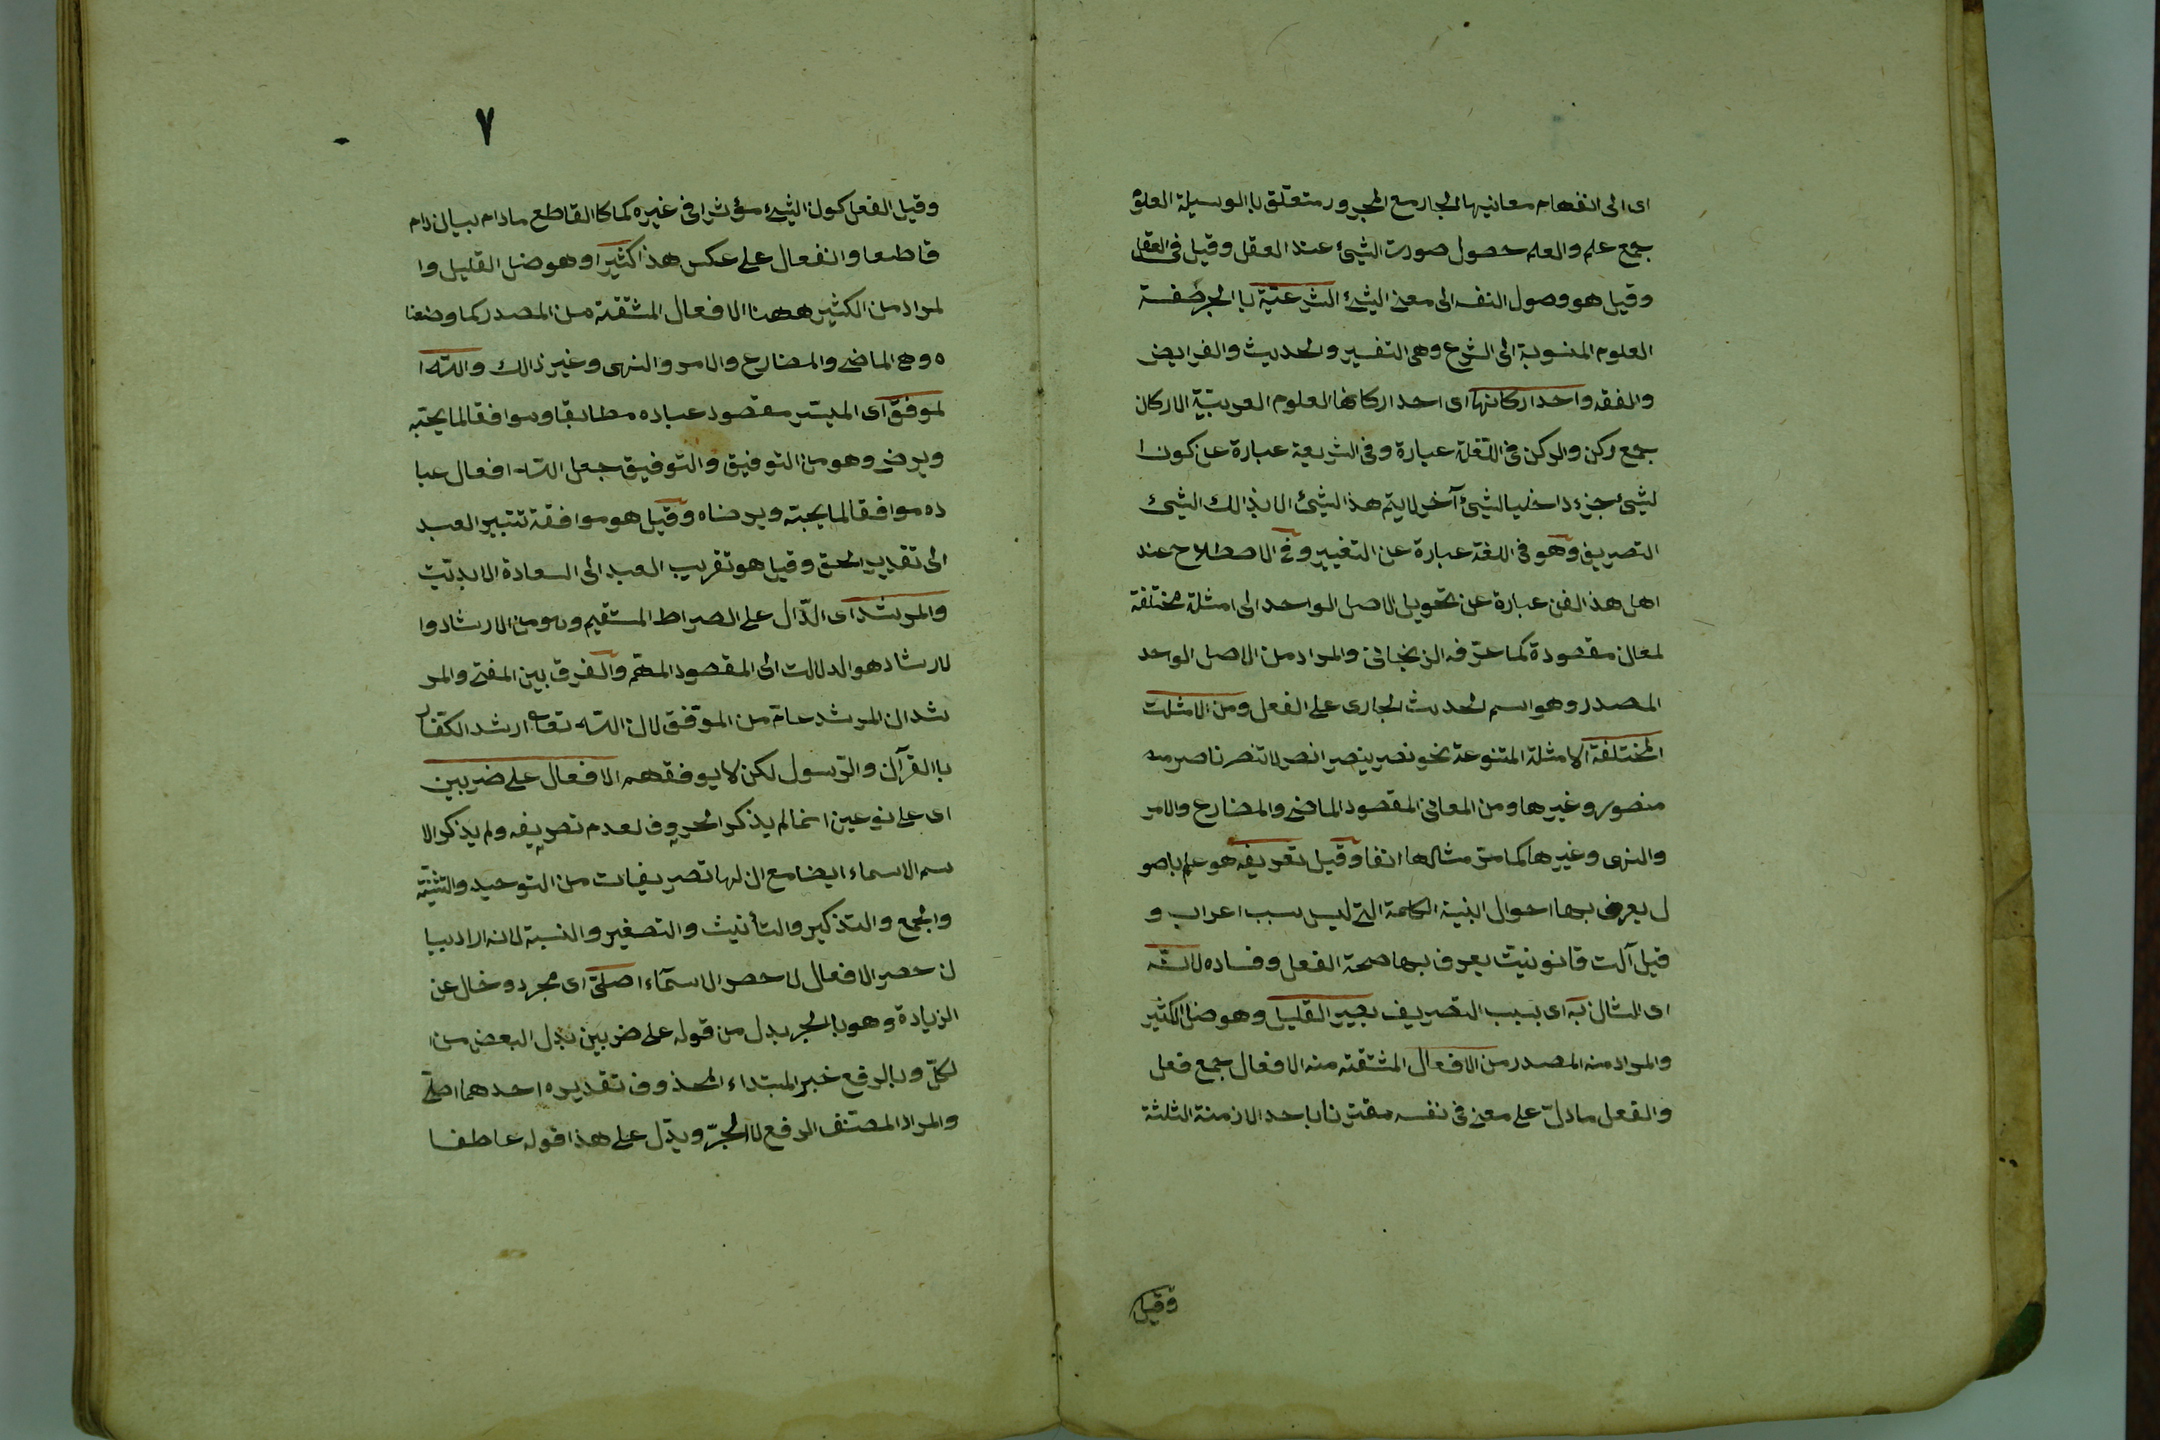 اى الى انفهام معانيها الجار مع المجرور متعلق بالوسيلة العلوم
جمع علم والعلم حصول صورت الشئ عند العقل وقيل فى العقل
وقيل هو وصول النفس الى معنى الشئ الشرعيّة با الجر صفة
العلوم المنسوبة الى الشرع وهى التفسير والحديث والفرايض
والفقه واحد اركانها اى احد اركانها العلوم العربيّة الاركان
جمع ركن والركن فى اللغة عبارة وفى الشريعة عبارة عن كون ا
لشئ جزء داخليا لشئ آخر لا يتم هذ الشئ الا بذالك الشئ
التصريف وهو فى اللغة عبارة عن التغيير وفى الاصطلاح عند
اهل هذ الفن عبارة عن تحويل الاصل الواحد الى امثلة مختلفة
لمعان مقصودة كما عرّفه الزنجانى والمراد من الاصل الواحد
المصدر وهو اسم الحدث الجارى على الفعل ومن الامثلت
المختلفة الامثلة المتنوعة نحو نصر ينصر انصر لا تنصر ناصر
منصور وغيرها ومن المعانى المقصود الماضى والمضارع والامر
والنهى وغيرها كما مرّ مثالها انفا وقيل تعريفه هو علم باصو
ل يعرف بها احوال ابنية الكلمة التى ليس بسبب اعراب و
قيل آلت قانونيت يعرف بها صحة الفعل وفساده لانّه
اى الشان به اى بسبب التصريف يصير القليل وهو ضد الكثير
والمراد منه المصدر من الافعال المشتقة منه الافعال جمع فعل
والفعل ما دلّ على معنى فى نفسه مقترنا باحد الازمنة الثلثة
وقيل
٧
وقيل الفعل كون الشئ مؤثرا فى غيره كما كا القاطع مادام
قاطعا وانفعال على عكس هذ اكثيرا وهو ضد القليل وا
لمراد من الكثير ههنا الافعال المشتقة من المصدر كما وضعنا
ه وهى الماضى والمضارع والامر والنهى وغير ذالك واللّه ا
لموفق اى الميسّر مقصود عباده مطابقا وموافقا لما يحبّه
ويرضى وهو من التوفيق والتوفيق جعل اللّه افعال عبا
ده موافقا لما يحبّه ويرضاه وقيل هو موافقة تدبير العبد
الى تقدير الحق وقيل هو تقريب العبد الى السعادة الابديّت
والمرشد اى الدّال على الصراط المستقيم وهو من الارشاد وا
لارشاد هو الدلالت الى المقصود المهمّ والفرق بين الموفق والمر
شد ان المرشد عامّ من الموفق لان اللّه تعالى ارشد الكفّار
با القرآن والرّسول لكن لا يوفقهم الافعال على ضربين
اى على نوعين انما لم يذكر الحروف لعدم تصريفه ولم يذكر الا
سم الاسماء ايضا مع ان لها تصريفات من التوحيد والتثنيّة
والجمع والتذكير والتأنيث والتصغير والنسبة لانه اراد بيا
ن حصر الافعال لا حصر الاسمآء اصلىّ اى مجرد وخال عن
الزيادة وهو با الجر بدل من قوله على ضربين بدل البعض من ا
لكلّ وبالرفع خبر المبتداء المحذوف تقديره احدهما اصلىّ
والمراد المصنّف الرفع لا الجرّ ويدّل على هذا قوله عاطفا